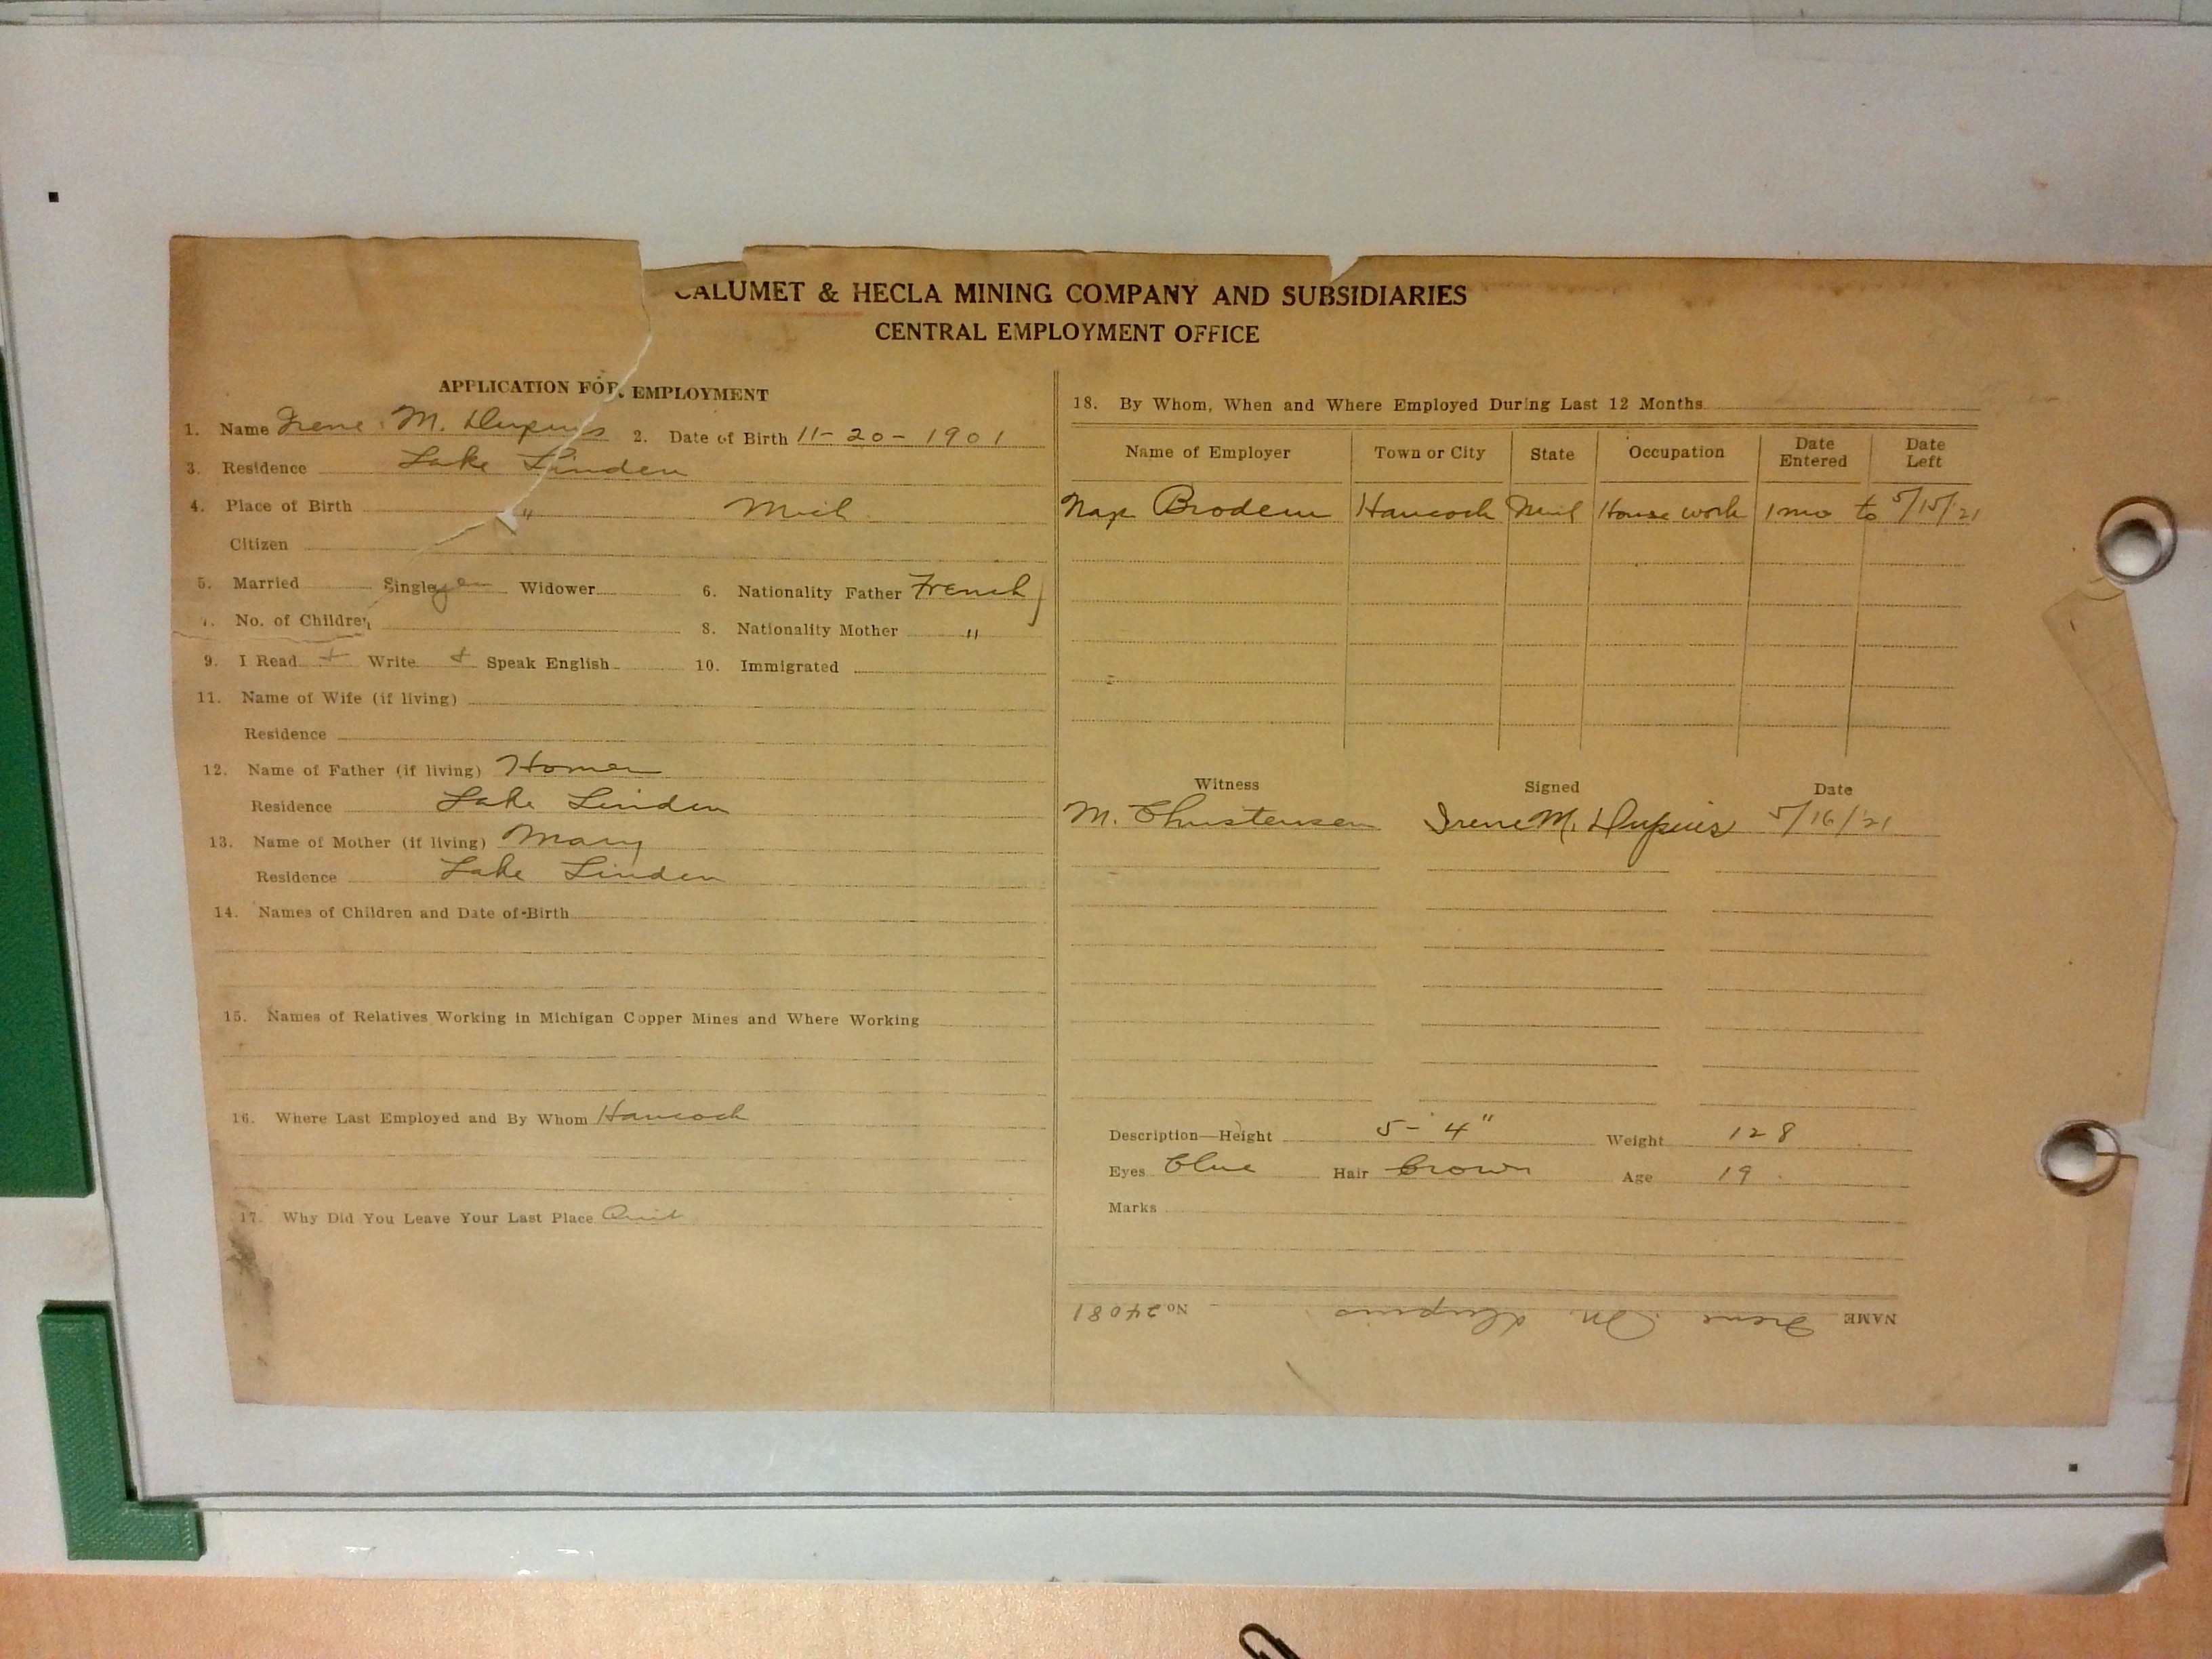 CALUMET & HECLA MINING COMPANY AND SUBSIDIARIES
CENTRAL EMPLOYMENT OFFICE
APPLICATION FOR EMPLOYMENT
1. Name Irene M. Dupuis 2. Date of Birth 11-20-1901
3. Residence Lake Linden
4. Place of Birth " Mich
Citizen
5. Married Single yes Widower 6. Nationality Father French
7. No. of Children 8. Nationality Mother "
9. I Read + Write + Speak English 10. Immigrated
11. Name of Wife (if living)
Residence
12. Name of Father (if living) Homer
Residence Lake Linden
13. Name of Mother (if living) Mary
Residence Lake Linden
14. Names of Children and Date of Birth
15. Names of Relatives Working in Michigan Copper Mines and Where Working
16. Where Last Employed and By Whom Hancock
17. Why Did You Leave Your Last Place Quit
18. By Whom, When and Where Employed During Last 12 Months
Name of Employer Town or City State Occupation Date Entered Date Left
Nap Hancock Mich House work 1 mo to 5/15/21
Witness Signed Date
M. Christensen Irene M. Dupuis 5/16/21
Description—Height 5-4" Weight 128
Eyes blue Hair brown Age 19
Marks
NAME Irene M. Dupuis No 24081